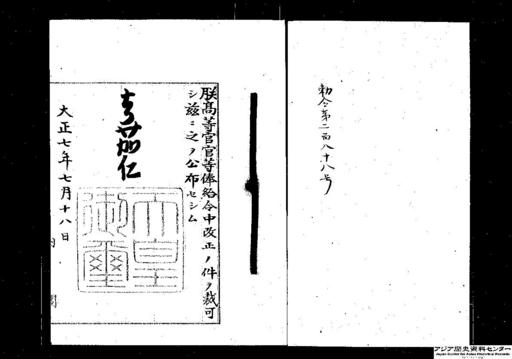 勅令第二百八十八号
朕高等官官等俸給令中改正ノ件ヲ裁可
シ茲ニ之ヲ公布セシム
嘉仁
天皇御璽
大正七年七月十八日
内閣
アジア歴史資料センター
Japan Center for Asian Historical Records